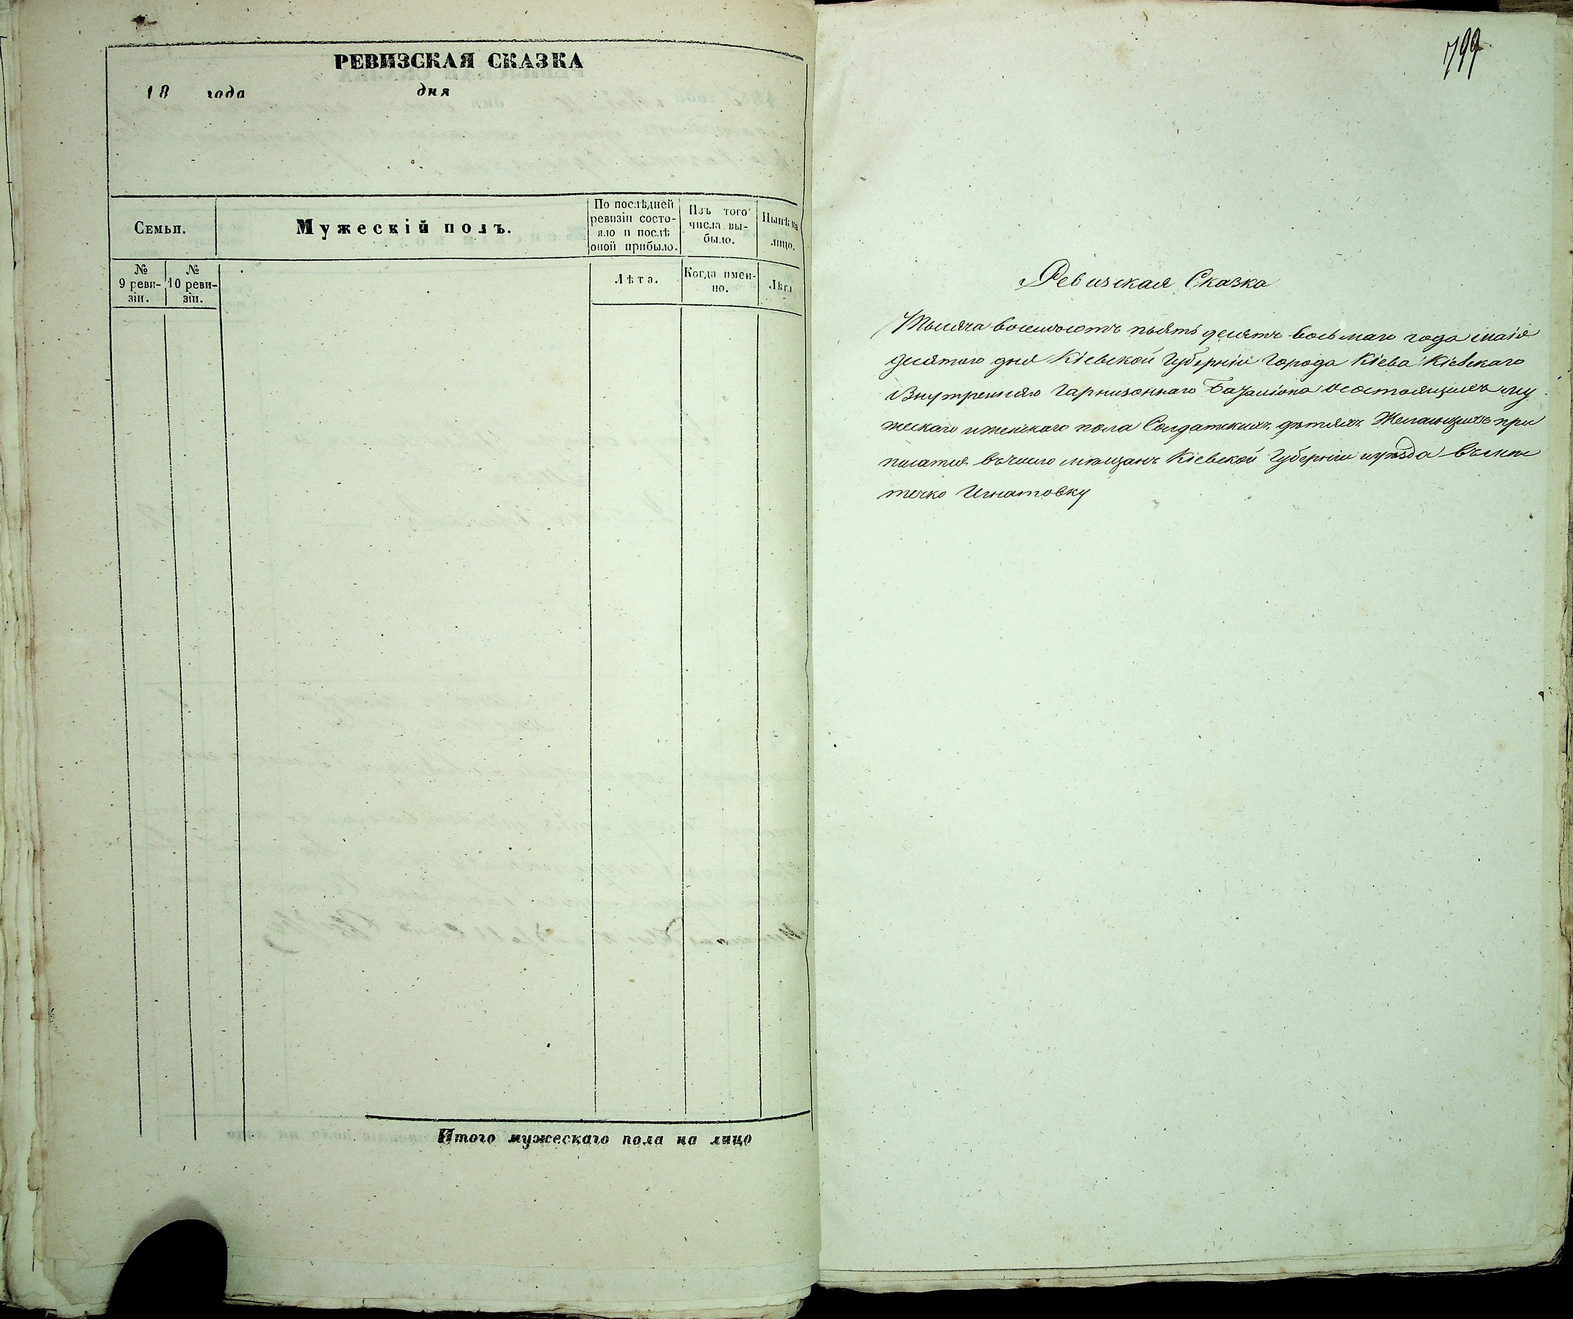 РЕВИЗСКАЯ СКАЗКА
18 года дня
Семьи.
Мужескій полъ.
По послѣдней
ревизіи состо-
яло и послѣ
оной прибыло.
Изъ того
числа вы-
было.
Нынѣ на
лицо.
№
9 реви-
зіи.
№
10 реви-
зіи.
Лѣта.
Когда имен-
но.
Лѣта
Итого мужескаго пола на лицо
799
Ревизская Сказка
Тысяча восемьсотъ пьятьдесятъ восьмаго года маія
десятого дня Кіевской Губерніи Города Кіева Кіевскаго
Внутренняго Гарнизоннаго Баталіона о состоящихъ му
жескаго и женскаго пола Солдатскихъ дѣтяхъ Желающихъ при
писатся въ число мѣщанъ Кіевской Губерніи и уѣзда въ мѣс
течко Игнатовку